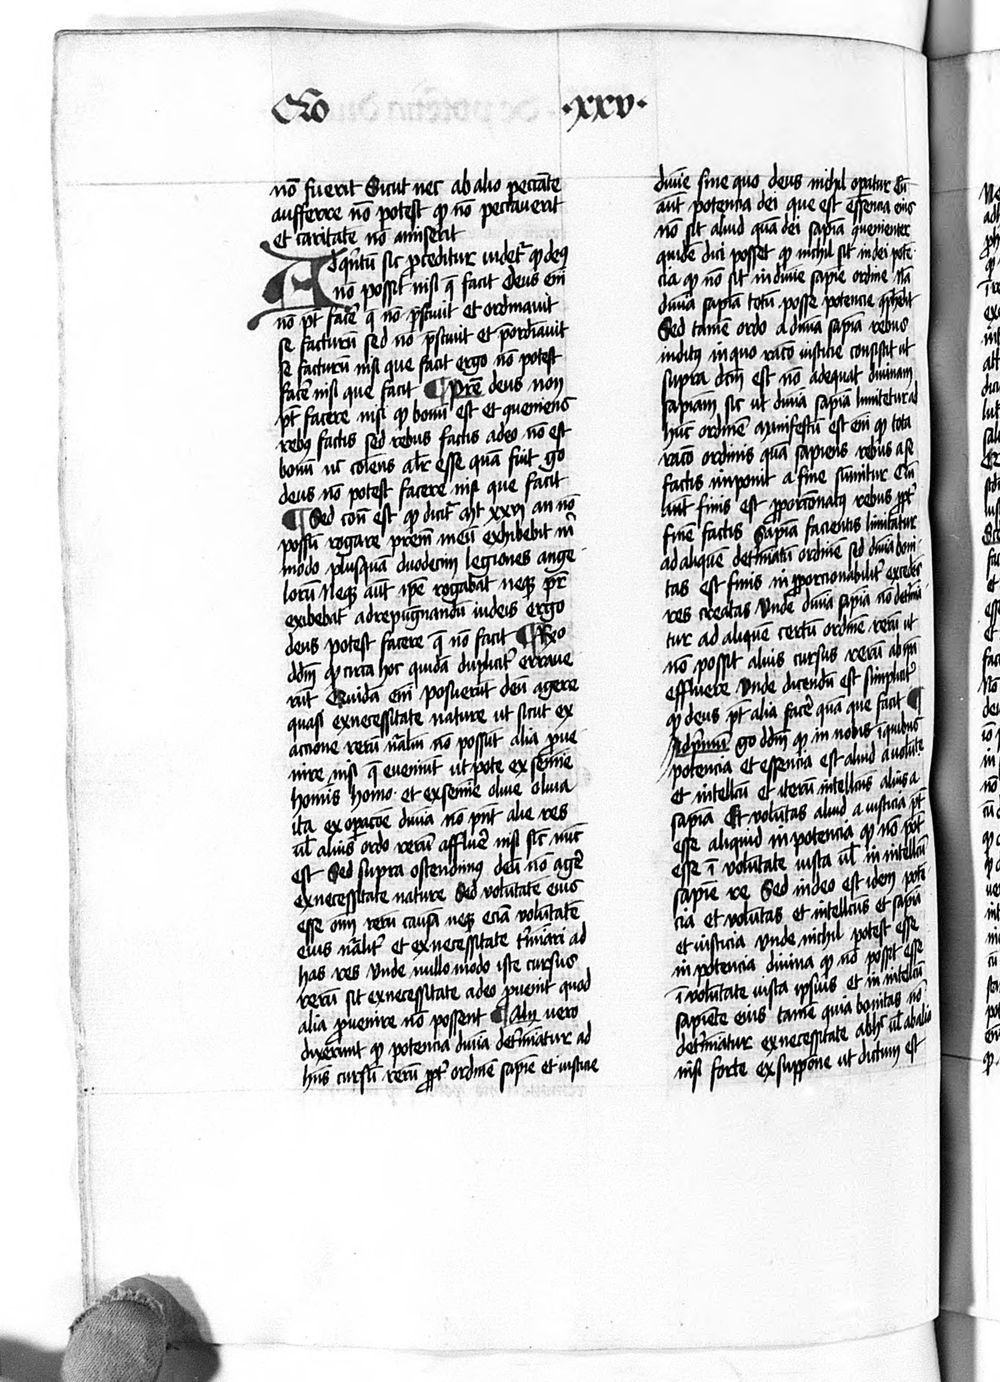 Qo ·xxv·
nō fuerit Sicut nec ab alio peccāte
aufferre nō potest qp nō peccauerit
et caritatē nō amiserit
Ad qͥntū sic ꝓceditur uidetʳ qp deꝰ
nō possit nisi q̄ facit Deus em̄
nō pt̄ facͤe q̄ nō p̄sciuit et ordinauit
se facturū sed nō p̄sciuit et p̄ordīauit
se facturū nisi que facit ergo nō potest
facͤe nisi que facit ¶ Pret̄ deus non
pt̄ facere nisi qp bonū est et queniens
rebꝰ factis sed rebus factis a deo nō est
bonū nc̄ coueīens alr̄ esse quā sint go
deus nō potest facere nisi que facit
¶ Sed con̄ est qp dicitʳ Mt xxvi an nō
possū rogare prem̄ meū et exhibebit m͡
modo plusquā duodecim legiones ange
lorū Neqꝫ aut̄ ip̄e rogabat neqꝫ pr̄
exibebat ad repugnandū iudeis ergo
deus potest facere q̄ nō facit ¶ Rͦo
dd̄m qp circa hoc quidā duplicitʳ erraue
rūt Quidā em̄ posuerūt deū agere
quasi ex necessitate nature ut sicut ex
accione rerū nāliū nō possūt alia ꝓue
nire nisi q̄ eueniūt ut pote ex semīe
homīs homo et ex semīe oliue oliua
ita ex opac̄oe diuīa nō pn̄t alie res
ul̄ alius ordo rerū affluēͤ nisi sic̄ nūc
est Sed supra ostendimꝰ deū nō agēͤ
ex necessitate nature Sed volūtatē eius
esse om̄ rerū causā neqꝫ eciā volūtatē
eius nāliṫ et ex necessitate tͤmīari ad
has res Vnde nullo modo iste cursus
rerū sic ex necessitate a deo ꝓuenit quod
alia ꝓuenire nō possent ¶ Alij uero
dixerunt qp potencia diuīa detͤmīatur ad
hūc cursū rerū ꝓpt̄ ordinē sapīe et iusticie
diuīe sine quo deus nichil opatur Cū
aūt potencia dei que est essencia eius
nō sit aliud quā dei sapīa quenienter
quidē dici posset qp nichil sit in dei potē
cia qp nō sit in diuīe sapīe ordine Nā
diuīa sapīa totū posse potencie qp̄hēdit
Sed tamē ordo a diuīa sapīa rebus
inditꝰ in quo rac̄o iusticie consistit ut
supra dc̄m est nō adequat diuinam
sapīam sic ut diuīa sapīa limitetur ad
hūc ordinē Manifestū est em̄ qp tota
rac̄o ordinis quā sapiens rebus a se
factis imponit a fine sumitur Cū
aūt finis est ꝓporc̄onatꝰ rebus ꝓpt̄
finē factis Sapīa facientis limitatur
ad aliquē detͤmīatū ordinē sed diuīa boni
tas est finis inꝓporcionabilitͤ excedēs
res creatas Vnde diuīa sapīa nō detͤmīa
tur ad aliquē certū ordinē rerū ut
nō possit alius cursus rerū ab ip̄a
effluere Vnde dicendū est simplicitͤ
qp deus pt̄ alia facͤe quā que facit ¶
Ad pͥmū go dd̄m qp in nobis ī quibus
potencia et essencia est aliud a volūtate
et intellcū et iterū intellcūs alius a
sapīa Et volūtas aliud a iusticia pt̄
esse aliquid in potencia qp nō pot̄
esse ī volūtate iusta ul̄ in intellcū
sapīe re Sed in deo est idem potē
cia et volūtas et intellcūs et sapīa
et iusticia Vnde nichil potest esse
in potencia diuina qp nō possit esse
ī volūtate iusta ipsius et in intellcū
sapīete eius tamē quia bonitas nō
detͤmīatur ex necessitate ab hͥ ul̄ ab alio
nisi forte ex supp̄one ut dictum est